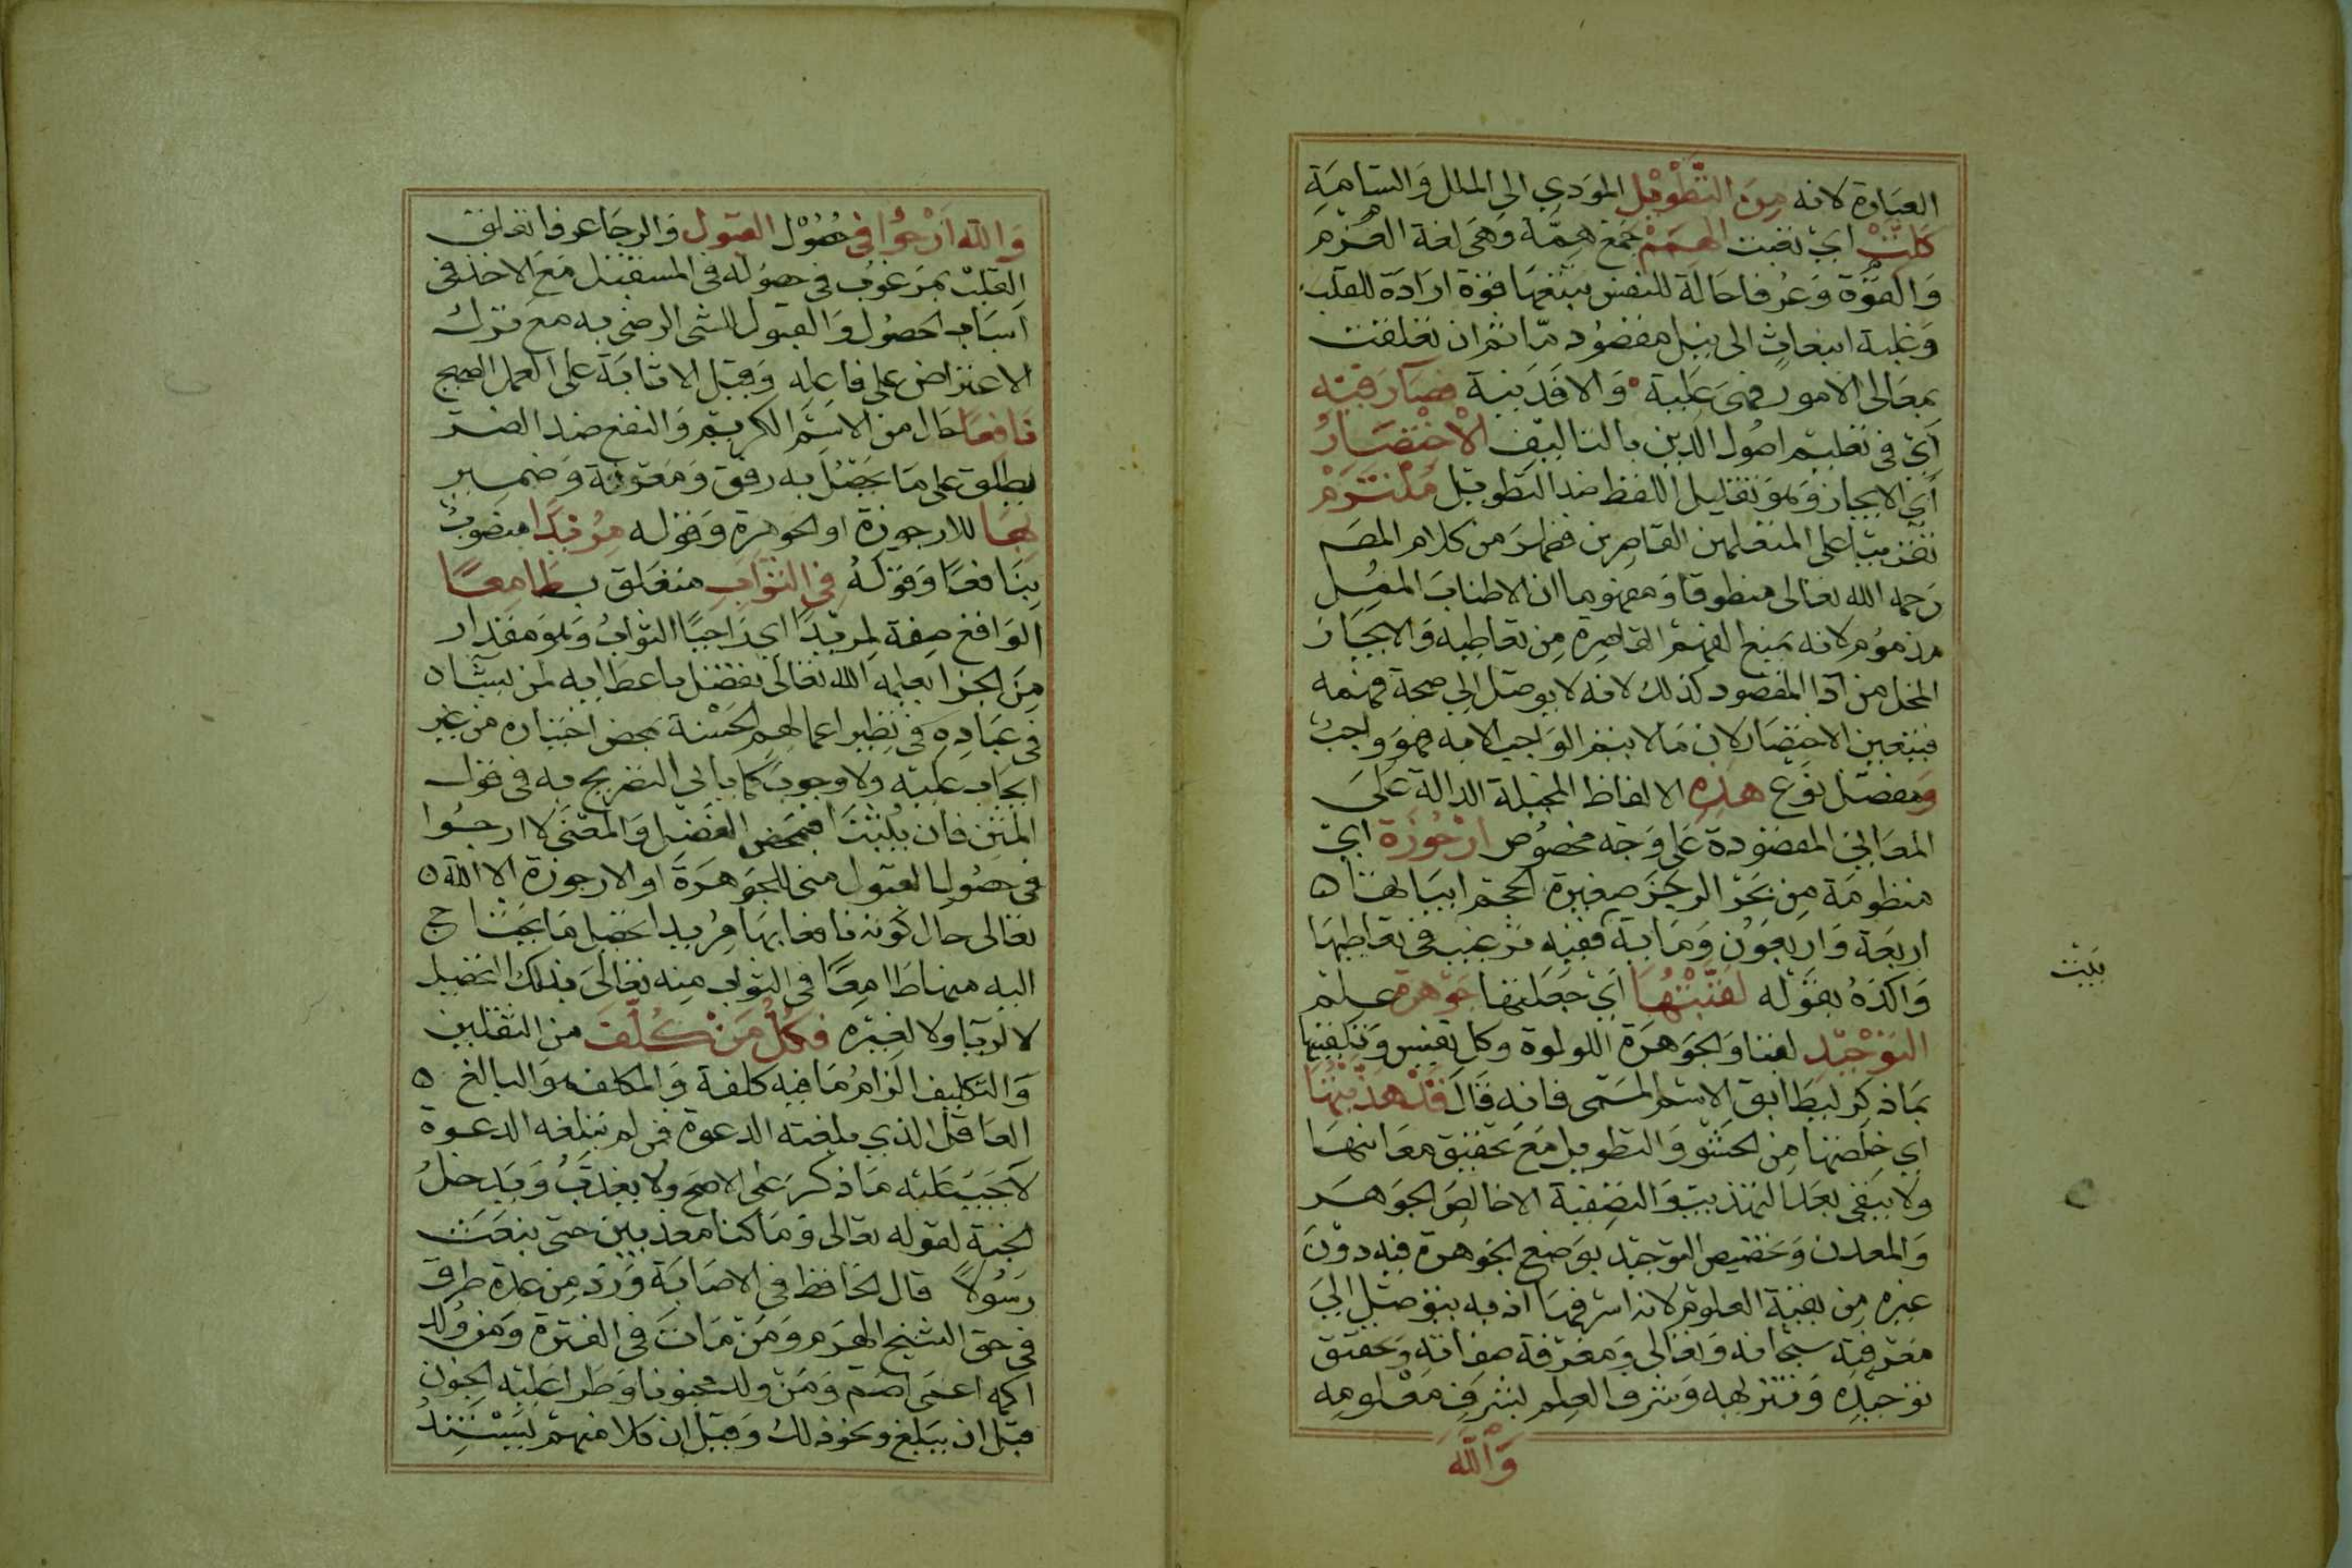 العبارة لانه من التطويل المودي الى الملل والسامة
كلت اي تعبت الهمم جمع همة وهي لغة العزم
والقوة وعرفا حالة للنفس يتبعها قوة ارادة للقلب
وغلبة انبعاث الى نيل مقصود ما ثم ان تعلقت
بمعالى الامور فهى علية والا فدنية فصار فيه
اي في تعليم اصول الدين بالتاليف الاختصار
اي الايجاز وهو تقليل اللفظ ضد التطويل ملتزم
تقريبا على المتعلمين القاصرين فظهر من كلام المص
رحمه الله تعالى منطوقا ومفهوما ان الاطناب الممل
مذموم لانه يمنع الهمم القاصرة من تعاطيه والايجاز
المخل من ادا المقصود كذلك لانه لا يوصل الى صحة فهمه
فيتعين الاختصار لان ما لا يتم الواجب الا به فهو واجب
ومفصل نوع هذه الالفاظ المخيلة الدالة على
المعاني المقصودة على وجه مخصوص ارجوزة اي
منظومة من بحر الرجز صغيرة الحجم ابياتها ه
اربعة واربعون وماية ففيه ترغيب في تعاطيها
واكده بقوله لقبتها اي جعلتها جوهرة علم
التوحيد لقبا والجوهرة اللولوة وكل نفيس وتلقيبها
بما ذكر ليطابق الاسم المسمى فانه قال قد هذبتها
اي خلصتها من الحشو والتطويل مع تحقيق معانيها
ولا يبقى بعد التهذيب والتصفية الا خالص الجوهر
والمعدن وتخصيص التوحيد بوضع الجوهرة فيه دون
غيره من بقية العلوم لانه اشرفها اذ به يتوصل الى
معرفته سبحانه وتعالى ومعرفة صفاته وتحقيق
توحيده وتنزيهه وشرف العلم بشرف معلومه
والله
بيت
والله ارجوا في حصول القبول والرجا عرفا تعلق
القلب بمرغوب في حصوله في المستقبل مع الاخذ في
اسباب الحصول والقبول للشى الرضى به مع ترك
الاعتراض على فاعله وقيل الاثابة على العمل الصحيح
نافعا حال من الاسم الكريم والنفع ضد الضر
يطلق على ما يحصل به رفق ومعونة وضمير
بها للارجوزة او الجوهرة وقوله مريدا منصوب
بنافعا وقوله في الثواب متعلق ب طامعا
الواقع صفة لمريدا اي راجيا الثواب وهو مقدار
من الجزا يعلمه الله تعالى تفضل باعطايه لمن يشاء
في عباده في نظير اعمالهم الحسنة بمحض اختياره من غير
ايجاب عليه ولا وجوب كما ياتي التصريح به في قول
المتن فان يثبنا فبمحض الفضل والمعنى لا ارجوا
في حصول القبول مني للجوهرة او الارجوزة الا الله ه
تعالى حال كونه نافعا بها مريدا تحصيل ما يحتاج
اليه منها طامعا في الثواب منه تعالى بذلك التحصيل
لا لريا ولا لغيره فكل من كلف من الثقلين
والتكليف الزام ما فيه كلفة والمكلف هو البالغ ه
العاقل الذي بلغته الدعوة فمن لم تبلغه الدعوة
لا يجب عليه ما ذكر على الاصح ولا يعذب ويدخل
الجنة لقوله تعالى وما كنا معذبين حتى نبعث
رسولا قال الحافظ في الاصابة ورد من عدة طرق
في حق الشيخ الهرم ومن مات في الفترة ومن ولد
اكمه اعمى اصم ومن ولد مجنونا او طرا عليه الجنون
قبل ان يبلغ ونحو ذلك وقيل ان كلا منهم